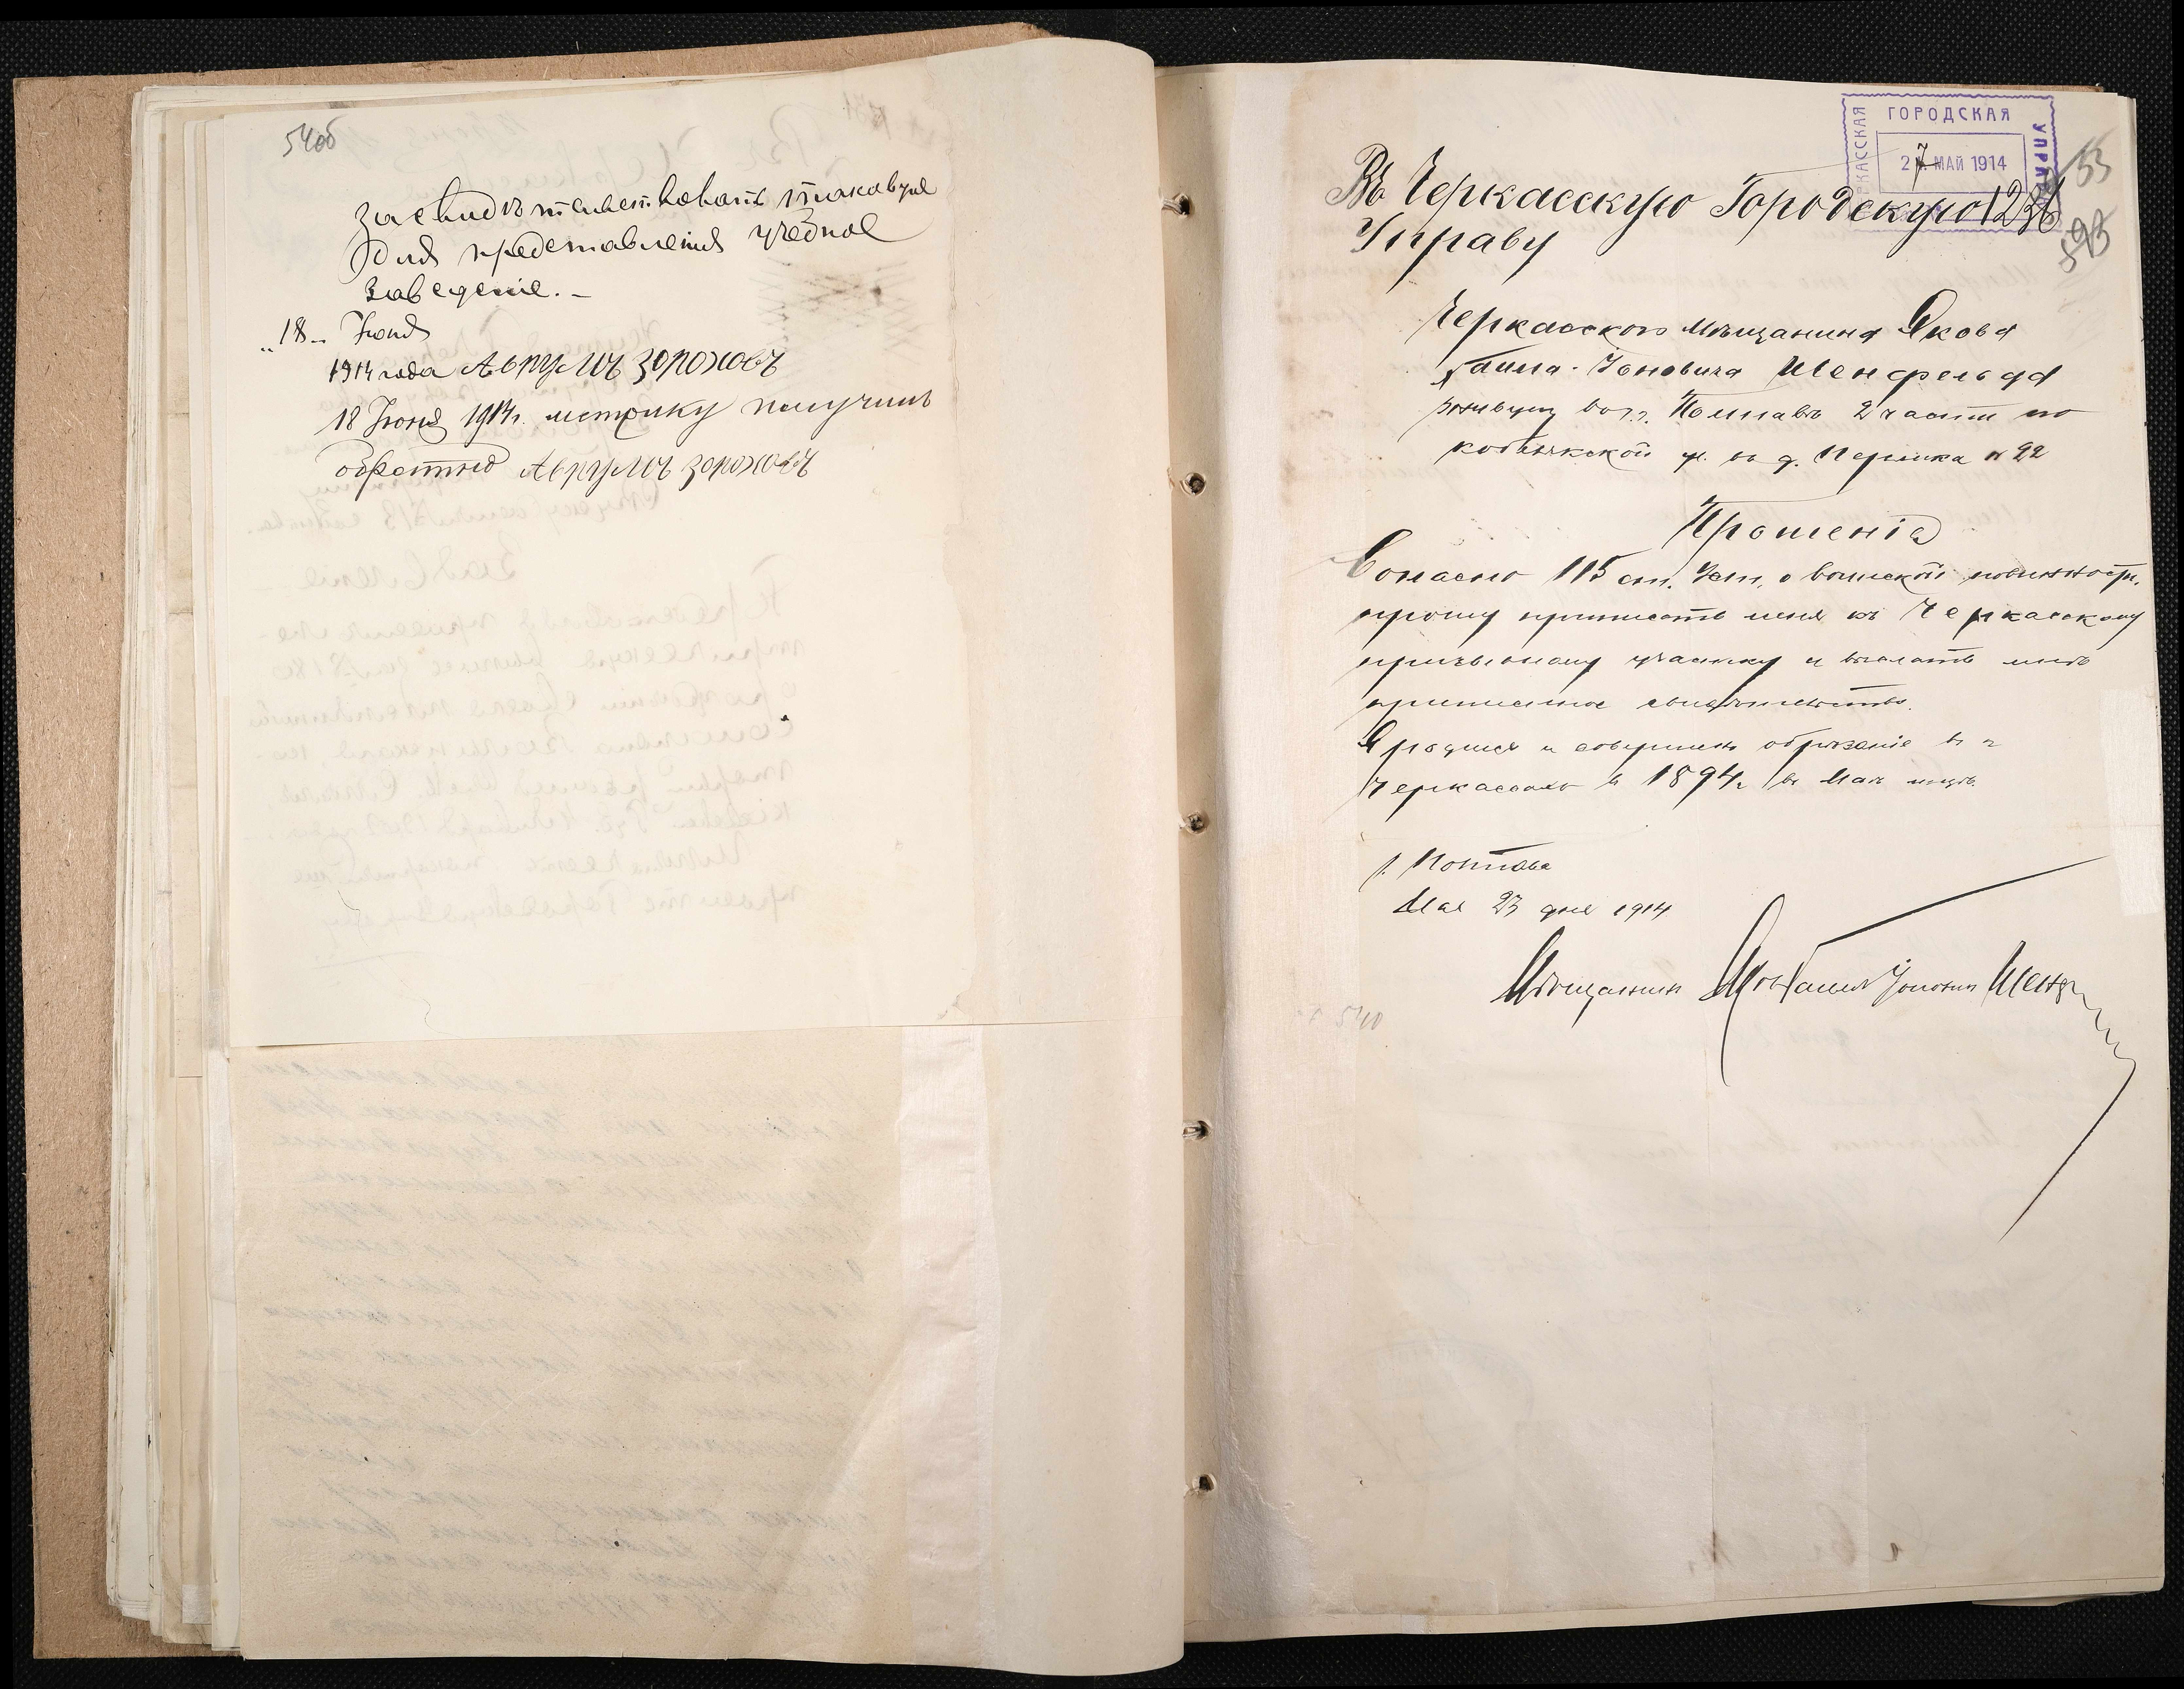 54об
засвидѣтельствовать таковую
для представленія учебное
заведеніе. –
„18„ Іюня
1914 года Аврумъ Зороховъ
18 Іюня 1914 г. метрику получилъ
обратно Аврумъ Зороховъ
ЧЕРКАССКАЯ ГОРОДСКАЯ УПРАВА
27 МАЙ 1914
55
Въ Черкасскую Городскую 1238
Управу
593
Черкасскаго мѣщанина Якова
Іоновича Шенфельда
живущ въ г. Полтавѣ 2 части по
ул. въ д. № 22
Прошеніе
Согласно 115 ст. Уст. о воинской повинности,
прошу приписать меня къ Черкасскому
призывному участку и выслать мнѣ
приписное свидѣтельство.
Я родился и совершенъ обрѣзаніе въ г
Черкассахъ въ 1894 г. въ Маѣ мцѣ.
г. Полтава
Мая 23 дня 1914
Мѣщанинъ Іоновичъ
540